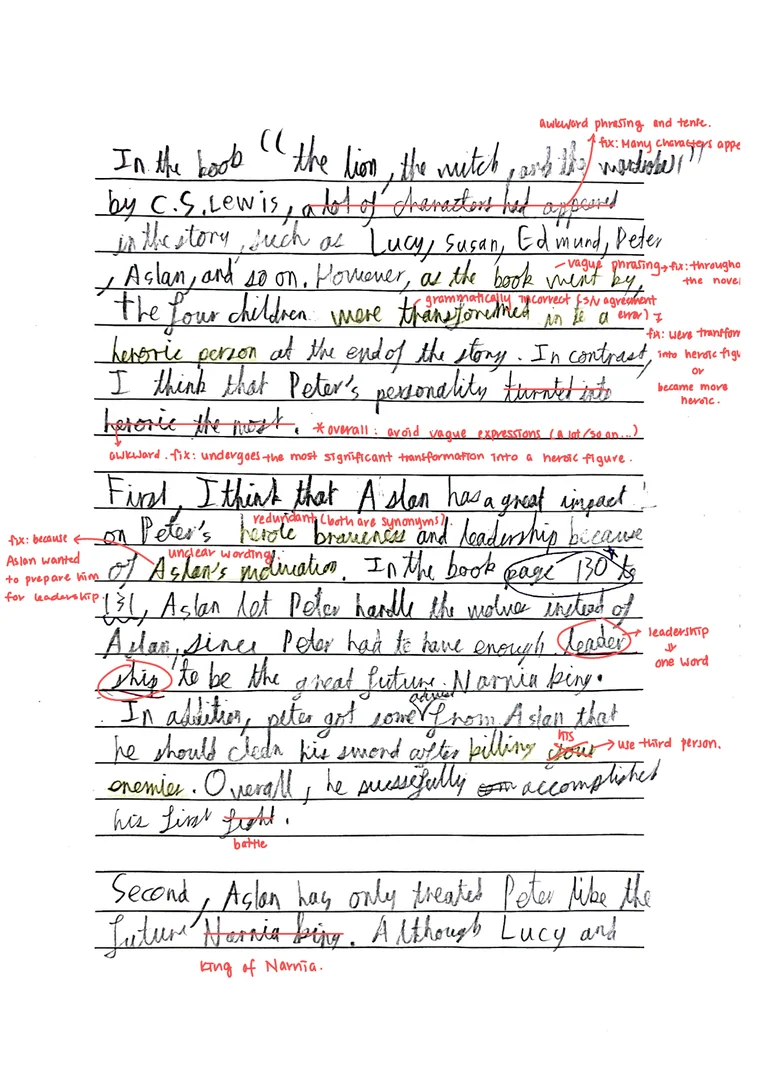 awkward phrasing and tense.
fix: Many characters appe
In the book “the lion, the witch, and the wardrobe,”
by C.S. Lewis, a lot of characters had appeared
in the story, such as Lucy, Susan, Edmund, Peter
- vague phrasing → fix: througho
the novel
, Aslan, and so on. However, as the book went by,
grammatically incorrect (S/V agreement
error)
the four children were transforemed in to a
fix: were transfom
heroric person at the end of the story. In contrast,
into heroic figu
or
I think that Peter's personality turnted into
became more
heroic.
heroric the most. *overall: avoid vague expressions (a lot/so on...)
awkward. fix: undergoes the most significant transformation into a heroic figure.
First, I think that Aslan has a great impact
redundant (both are synonyms).
on Peter's heroic braveness and leadership because
fix: because
Aslan wanted
to prepare him
for leadership
unclear wording
of Aslan's motivation. In the book page 130 to
131, Aslan let Peter handle the wolves instead of
Aslan, since Peter had to have enough leader
leadership
one word
ship to be the great future Narnia king.
In addition, peter got some advice from Aslan that
his
he should clean his sword after killing your
→ use third person.
enemies. Overall, he sucssefully accomplished
his first fight.
battle
Second, Aslan has only treated Peter like the
future Narnia king. Although Lucy and
king of Narnia.